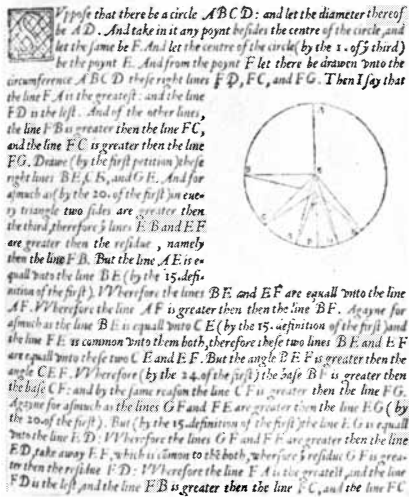 Vppose that there be a circle ABCD: and let the diameter thereof
be AD. And take in it any poynt besides the centre of the circle, and
let the same be F. And let the centre of the circle (by the 1. of ỹ third)
be the poynt E. And from the poynt F let there be drawen vnto the
circumference ABCD these right lines FD, FC, and FG. Then I say that
the line FA is the greatest: and the line
FD is the lest. And of the other lines,
the line FB is greater then the line FC,
and the line FC is greater then the line
FG. Drawe (by the first petition) these
right lines BE, CE, and GE. And for
asmuch as (by the 20. of the first) in eue-
ry triangle two sides are greater then
the third, therefore ỹ lines EB and EF
are greater then the residue, namely
then the line FB. But the line AE is e-
quall vnto the line BE (by the 15. defi-
nition of the first). VVherefore the lines BE and EF are equall vnto the line
AF. VVherefore the line AF is greater then then the line BF. Agayne for
asmuch as the line BE is equall vnto CE (by the 15. definition of the first) and
the line FE is common vnto them both, therefore these two lines BE and EF
are equall vnto these two CE and EF. But the angle BEF is greater then the
angle CEF. VVherefore (by the 24. of the first) the base BF is greater then
the base CF: and by the same reason the line CF is greater then the line FG.
Agayne for asmuch as the lines GF and FE are greater then the line EG (by
the 20. of the first). But (by the 15. definition of the first) the line EG is equall
vnto the line ED: VVherefore the lines GF and FE are greater then the line
ED, take away EF, which is cōmon to them both, wherfore ỹ residue GF is grea-
ter then the residue FD: VVherefore the line FA is the greatest, and the line
FD is the lest, and the line FB is greater then the line FC, and the line FC
A
B
E